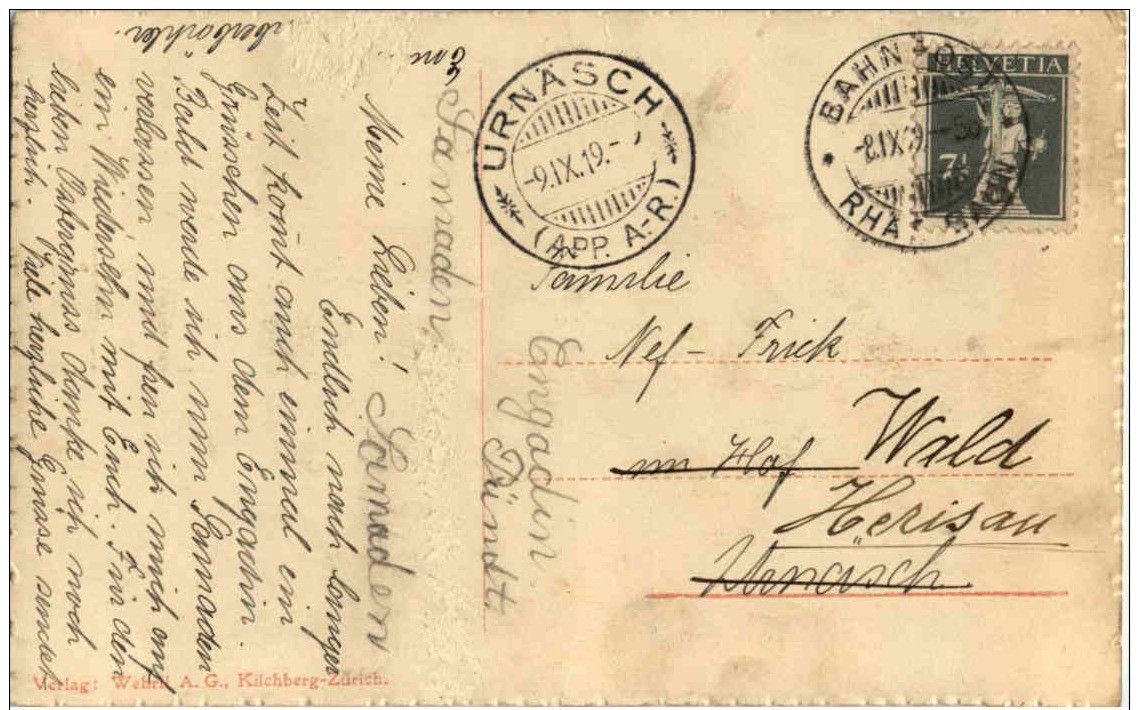 Meine Lieben!
Endlich nach langer
Zeit kom̄t auch einmal ein
Grüschen aus dem Engadin.
Bald werde ich nun Samaden
verlassen und freu mich auf
ein Wiedersehn mit Euch. Für den
lieben Ostergruss danke ich noch
herzlich. Viele herzliche Grüsse sendet
Eure
Samaden.
Samaden
Engadin.
Bündt.
URNÄSCH
-9.IX.19.-
(APP. A-R.)
BAHNPOST
RHÄT. BAHN
HELVETIA
7½
Familie
Nef - Frick
im Hof Wald
Herisau
Urnäsch.
Verlag: Wehrli A. G., Kilchberg-Zürich.